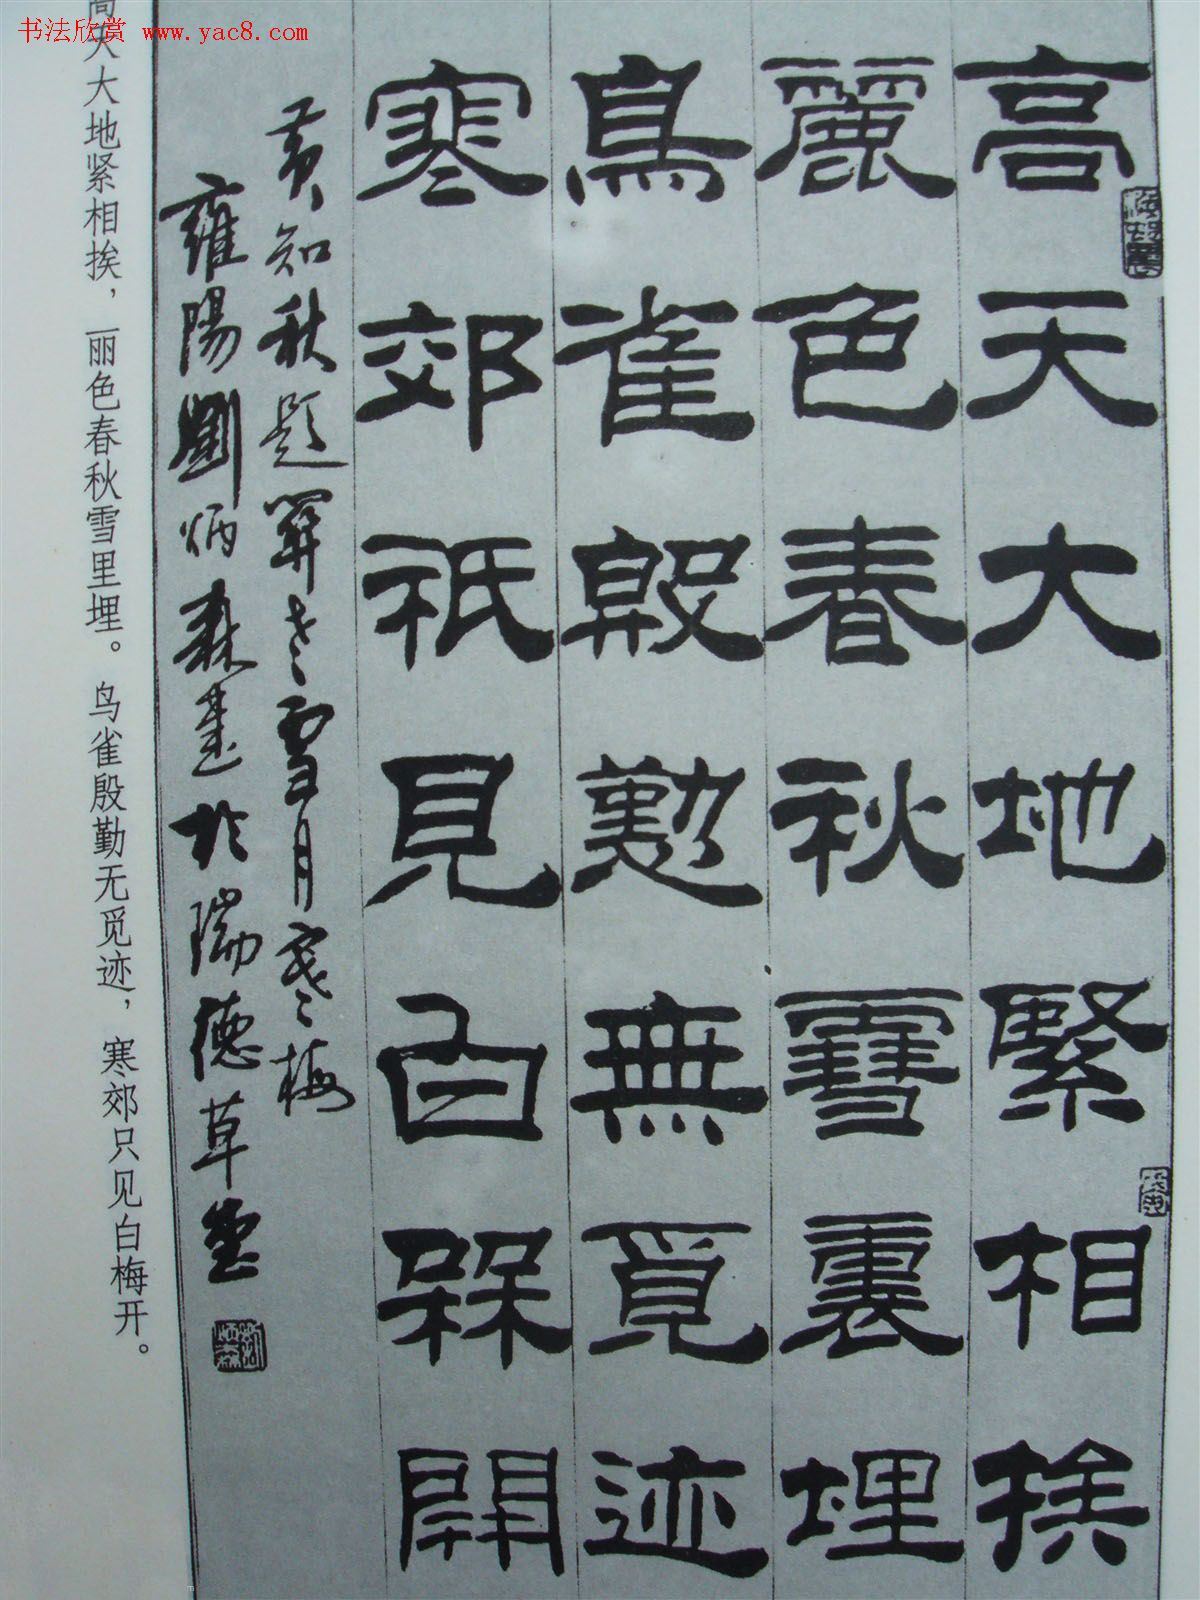 书法欣赏 www.yac8.com
高天大地紧相挨
麗色春秋雪裏埋
鳥雀殷懃無覓迹
寒郊祇見白槑開
黄知秋題關老雪月寒梅
雍陽劉炳森書於瑞德草堂
高天大地紧相挨，丽色春秋雪里埋。鸟雀殷勤无觅迹，寒郊只见白梅开。